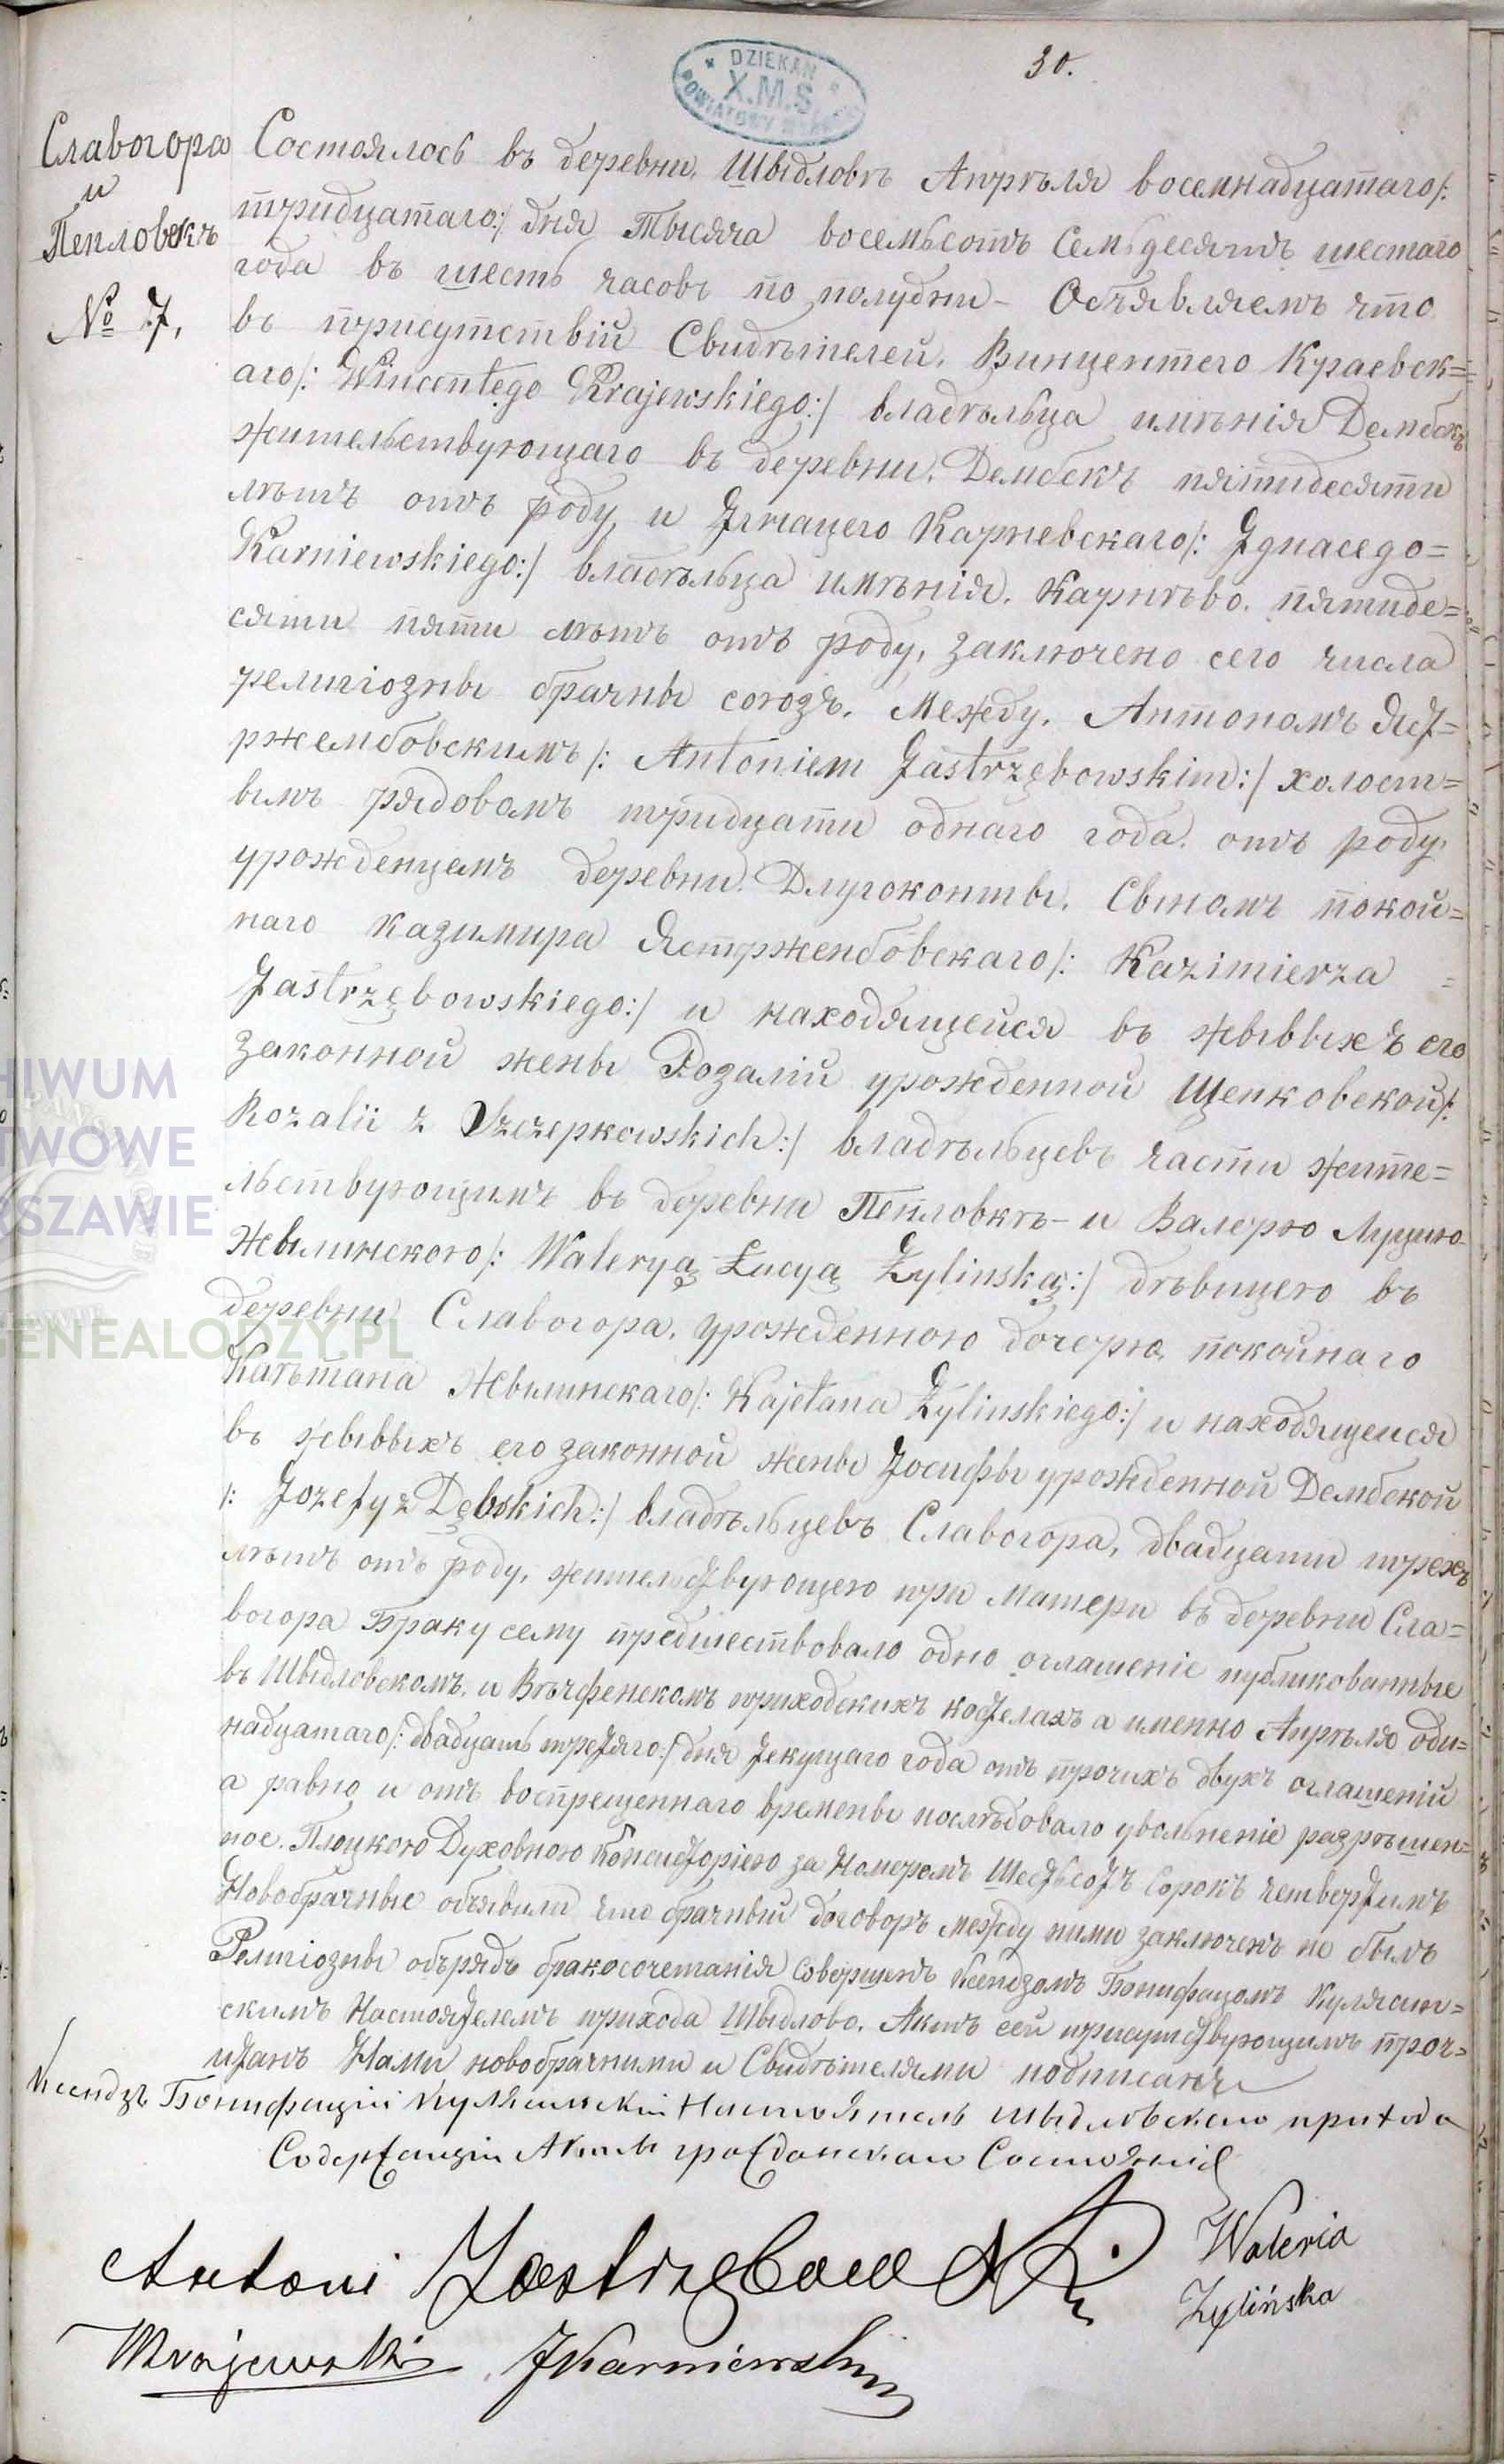 30.
DZIEKAN
X.M.S.
POWIATOWY
Славогора
и
Пепловекъ
№ 7,
Состоялось въ деревни, Шыдловѣ Апрѣля восемнадцатаго/:
тридцатаго:/ дня Тысяча восемьсотъ семьдесятъ шестаго
года въ шесть часовъ по полудни – Объявляемъ что
въ присутствіи Свидѣтелей, Винцентего Краевск=
аго/: Wincentego Krajewskiego:/ владѣльца имѣнія Дембскъ
жительствующаго въ деревни, Дембскъ пятидесяти
лѣтъ отъ роду, и Игнацего Карневскаго/: Ignacego=
Karniewskiego:/ владѣльца имѣнія, Карнѣво, пятиде=
сяти пяти лѣтъ отъ роду, заключено сего числа
религіозны брачны союзъ, Между, Антономъ Яст=
ржембовскимъ/: Antoniem Jastrzębowskim:/ холост=
ымъ рядовомъ тридцати однаго года, отъ роду,
урожденцемъ деревни Длугоконты, Сыномъ покой=
наго Казимира Ястржембовскаго/: Kazimierza =
Jastrzębowskiego:/ и находящейся въ жывыхъ его
законной жены Розаліи урожденной Щепковской/:
Rozalii z Szczepkowskich:/ владѣльцевъ части жите=
льствующимъ въ деревни Пепловкѣ – и Валерю Луцию
Жылинскою/: Waleryą Łucyą Żylinską:/ дѣвицею въ
деревни Славогора, урожденною дочерю, покойнаго
Каѣтана Жылинскаго/: Kajetana Żylinskiego:/ и находящейся
въ жывыхъ его законной жены Іосифы урожденной Дембской
/: Jozefy z Dębskich:/ владѣльцевъ Славогора, двадцати трехъ
лѣтъ отъ роду, жительствующею при Матери въ деревни Сла=
вогора Браку сему предшествовало одно оглашеніе публикованные
въ Шыдловскомъ, и Вѣчфенскомъ приходскихъ костелахъ а именно Апрѣля оди=
надцатаго/: двадцать третяго:/ дня текущаго года отъ прочихъ двухъ оглашеній
а равно и отъ воспрещеннаго времены послѣдовало увольненіе разрѣшен=
ное, Плоцкою Духовною Консисторіею за Номеромъ Шестьсотъ Сорокъ четвертымъ
Новобрачные объявили что брачный договоръ между ними заключенъ не былъ
Религіозны обърядъ бракосочетанія совершенъ Ксендзомъ Бонифацомъ Кулясин=
скимъ Настоятелемъ прихода Шыдлово, Актъ сей присутствующимъ проч=
итанъ Нами новобрачними и Свидѣтелями подписанъ
Ксендзъ Бонифацій Кулясинскій Настоятель Шыдловскаго прихода
Содержащій Акты гражданскаго Состоянія
Antoni Jastrzębowski
Waleria
Żylińska
WKrajewski JKarniewski
HIWUM
TWOWE
RSZAWIE
GENEALODZY.PL